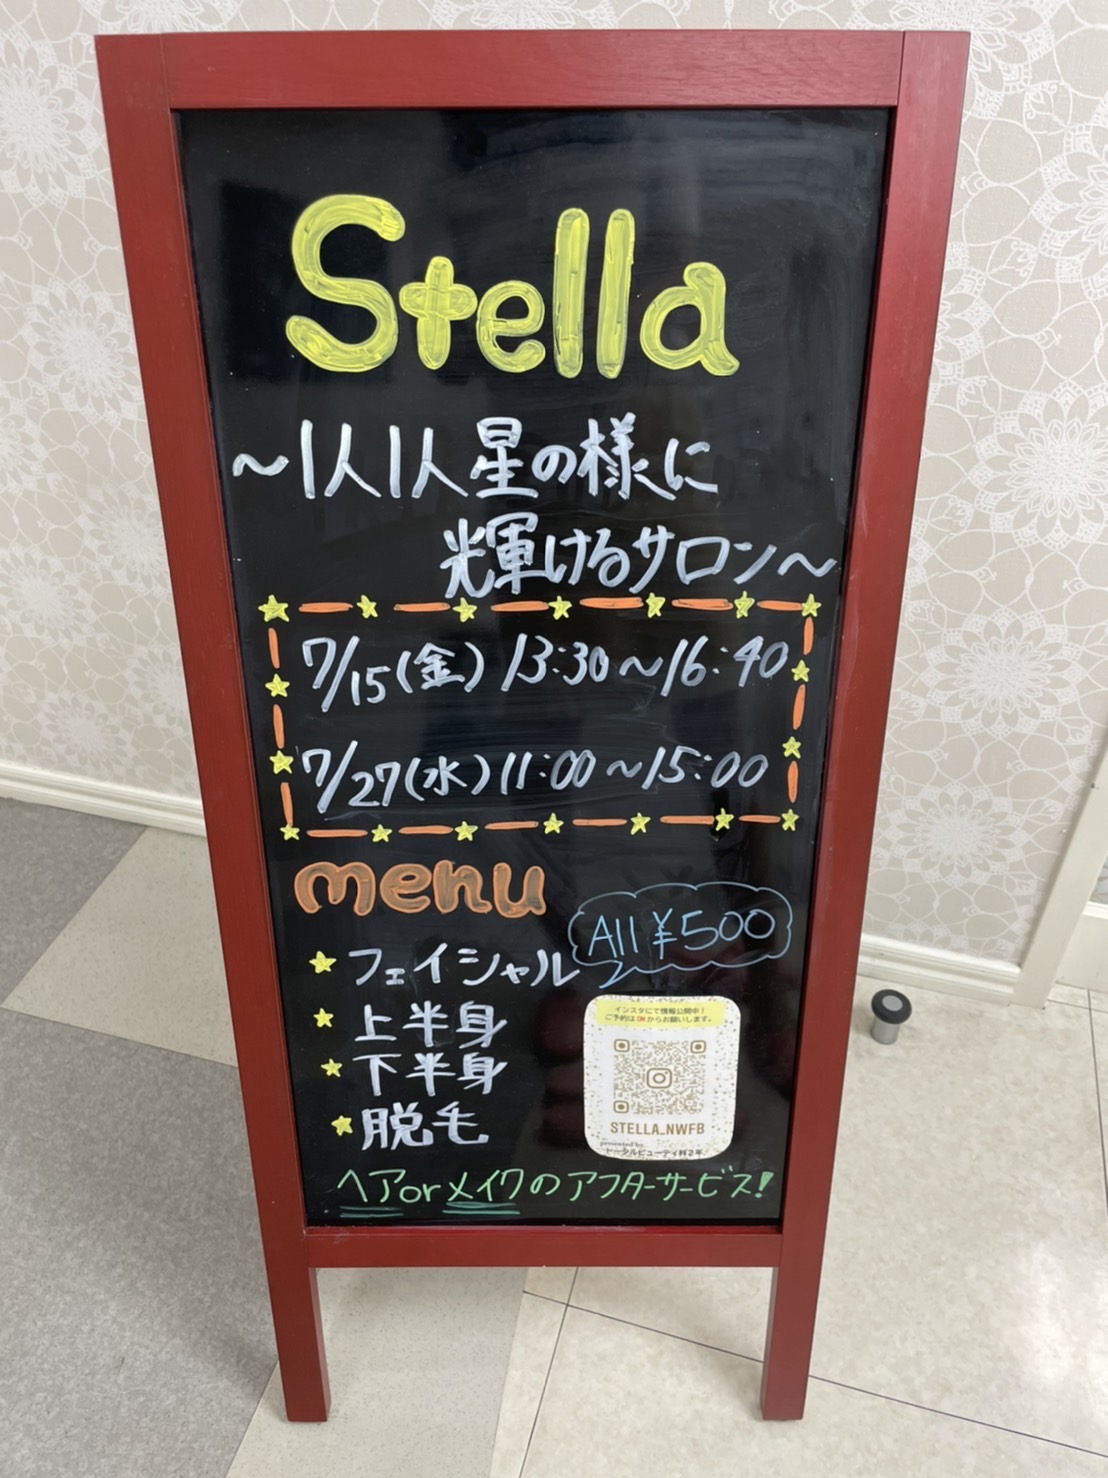 Stella
～1人1人星の様に
輝けるサロン～
7/15(金) 13:30～16:40
7/27(水) 11:00～15:00
menu
All ¥500
フェイシャル
上半身
下半身
脱毛
インスタにて情報公開中！
ご予約はDMからお願いします。
STELLA_NWFB
presented by
トータルビューティ科2年
ヘアorメイクのアフターサービス！